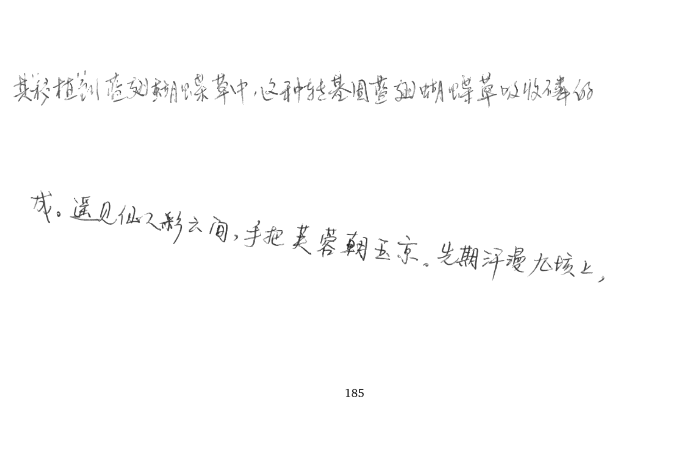 其移植到蓝翅蝴蝶草中,这种转基因蓝翅蝴蝶草吸收磷的
成。遥见仙人彩云间,手把芙蓉朝玉京。先期汗漫九垓上,
185